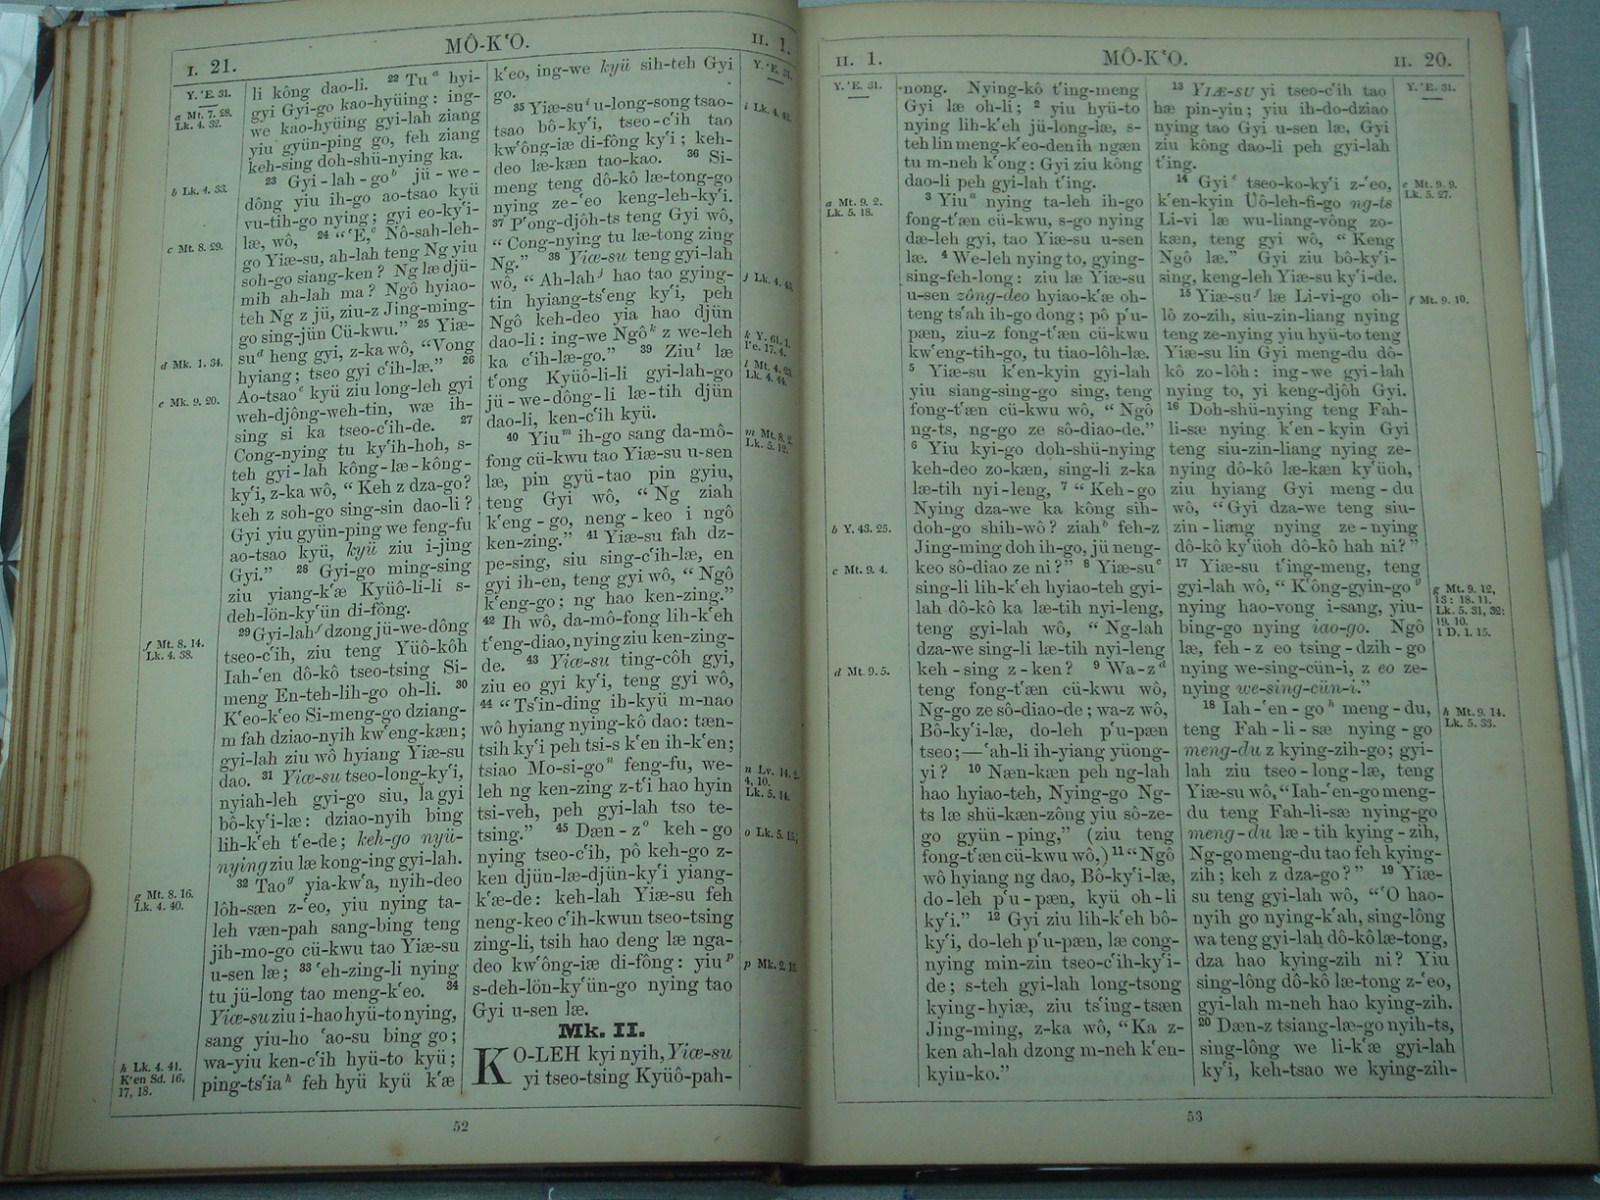 I. 21.
MÔ-KʻO.
II. 1.
Y. ʻE. 31.
a Mt. 7. 28.
Lk. 4. 32.
b Lk. 4. 33.
c Mt. 8. 29.
d Mk. 1. 34.
e Mk. 9. 20.
f Mt. 8. 14.
Lk. 4. 38.
g Mt. 8. 16.
Lk. 4. 40.
h Lk. 4. 41.
Kʻen Sd. 16.
17, 18.
li kông dao-li. 22 Tu a hyi-
gyi Gyi-go kao-hyüing: ing-
we kao-hyüing gyi-lah ziang
yiu gyün-ping go, feh ziang
keh-sing doh-shü-nying ka.
23 Gyi-lah-go b jü-we-
dông yiu ih-go ao-tsao kyü
vu-tih-go nying; gyi eo-kyʻi-
læ, wô, 24 “ʻE, c Nô-sah-leh-
go Yiæ-su, ah-lah teng Ng yiu
soh-go siang-ken? Ng læ djü-
mih ah-lah ma? Ngô hyiao-
teh Ng z jü, ziu-z Jing-ming-
go sing-jün Cü-kwu.” 25 Yiæ-
su d heng gyi, z-ka wô, “Vong
hyiang; tseo gyi cʻih-læ.” 26
Ao-tsao e kyü ziu long-leh gyi
weh-djông-weh-tin, wæ ih-
sing si ka tseo-cʻih-de. 27
Cong-nying tu kyʻih-hoh, s-
teh gyi-lah kông-læ-kông-
kyʻi, z-ka wô, “Keh z dza-go?
keh z soh-go sing-sin dao-li?
Gyi yiu gyün-ping we feng-fu
ao-tsao kyü, kyü ziu i-jing
Gyi.” 28 Gyi-go ming-sing
ziu yiang-kʻæ Kyüô-li-li s-
deh-lön-kyʻün di-fông.
29 Gyi-lah f dzong jü-we-dông
tseo-cʻih, ziu teng Yüô-kôh
Iah-ʻen dô-kô tseo-tsing Si-
meng En-teh-lih-go oh-li. 30
Kʻeo-kʻeo Si-meng-go dziang-
m fah dziao-nyih kwʻeng-kæn;
gyi-lah ziu wô hyiang Yiæ-su
dao. 31 Yiæ-su tseo-long-kyʻi,
nyiah-leh gyi-go siu, la gyi
bô-kyʻi-læ: dziao-nyih bing
lih-kʻeh tʻe-de; keh-go nyü-
nying ziu læ kong-ing gyi-lah.
32 Tao g yia-kwʻa, nyih-deo
lôh-sæn z-ʻeo, yiu nying ta-
leh væn-pah sang-bing teng
jih-mo-go cü-kwu tao Yiæ-su
u-sen læ; 33 ʻeh-zing-li nying
tu jü-long tao meng-kʻeo. 34
Yiæ-su ziu i-hao hyü-to nying,
sang yiu-ho ʻao-su bing go;
wa-yiu ken-cʻih hyü-to kyü;
ping-tsʻia h feh hyü kyü kʻæ
kʻeo, ing-we kyü sih-teh Gyi
go.
35 Yiæ-su i u-long-song tsao-
tsao bô-kyʻi, tseo-cʻih tao
kwʻông-iæ di-fông kyʻi; keh-
deo læ-kæn tao-kao. 36 Si-
meng teng dô-kô læ-tong-go
nying ze-ʻeo keng-leh-kyʻi.
37 Pʻong-djôh-ts teng Gyi wô,
“Cong-nying tu læ-tong zing
Ng.” 38 Yiæ-su teng gyi-lah
wô, “Ah-lah j hao tao gying-
tin hyiang-tsʻeng kyʻi, peh
Ngô keh-deo yia hao djün
dao-li: ing-we Ngô k z we-leh
ka cʻih-læ-go.” 39 Ziu l læ
tʻong Kyüô-li-li gyi-lah-go
jü-we-dông-li læ-tih djün
dao-li, ken-cʻih kyü.
40 Yiu m ih-go sang da-mô-
fong cü-kwu tao Yiæ-su u-sen
læ, pin gyü-tao pin gyiu,
teng Gyi wô, “Ng ziah
kʻeng-go, neng-keo i ngô
ken-zing.” 41 Yiæ-su fah dz-
pe-sing, siu sing-cʻih-læ, en
gyi ih-en, teng gyi wô, “Ngô
kʻeng-go; ng hao ken-zing.”
42 Ih wô, da-mô-fong lih-kʻeh
tʻeng-diao, nying ziu ken-zing-
de. 43 Yiæ-su ting-côh gyi,
ziu eo gyi kyʻi, teng gyi wô,
44 “Tsʻin-ding ih-kyü m-nao
wô hyiang nying-kô dao: tæn-
tsih kyʻi peh tsi-s kʻen ih-kʻen;
tsiao Mo-si-go n feng-fu, we-
leh ng ken-zing z-tʻi hao hyin
tsi-veh, peh gyi-lah tso te-
tsing.” 45 Dæn-z o keh-go
nying tseo-cʻih, pô keh-go z-
ken djün-læ-djün-kyʻi yiang-
kʻæ-de: keh-lah Yiæ-su feh
neng-keo cʻih-kwun tseo-tsing
zing-li, tsih hao deng læ nga-
deo kwʻông-iæ di-fông: yiu p
s-deh-lön-kyʻün-go nying tao
Gyi u-sen læ.
Mk. II.
KO-LEH kyi nyih, Yiæ-su
yi tseo-tsing Kyüô-pah-
Y. ʻE. 31.
i Lk. 4. 42.
j Lk. 4. 43.
k Y. 61. 1.
l Mt. 4. 23.
Lk. 4. 44.
m Mt. 8. 2.
Lk. 5. 12.
n Lv. 14. 2.
4, 10.
Lk. 5. 14.
o Lk. 5. 15.
p Mk. 2. 13.
52
II. 1.
MÔ-KʻO.
II. 20.
Y. ʻE. 31.
a Mt. 9. 2.
Lk. 5. 18.
b Y. 43. 25.
c Mt. 9. 4.
d Mt. 9. 5.
nong. Nying-kô tʻing-meng
Gyi læ oh-li; 2 yiu hyü-to
nying lih-kʻeh jü-long-læ, s-
teh lin meng-kʻeo-deo ih ngæn
tu m-neh kʻong: Gyi ziu kông
dao-li peh gyi-lah tʻing.
3 Yiu a nying ta-leh ih-go
fong-tʻæn cü-kwu, s-go nying
dæ-leh gyi, tao Yiæ-su u-sen
læ. 4 We-leh nying to, gying-
sing-feh-long: ziu læ Yiæ-su
u-sen zông-deo hyiao-kʻæ oh-
teng tsʻah ih-go dong; pô pʻu-
pæn, ziu-z fong-tʻæn cü-kwu
kwʻeng-tih-go, tu tiao-lôh-læ.
5 Yiæ-su kʻen-kyin gyi-lah
yiu siang-sing-go sing, teng
fong-tʻæn cü-kwu wô, “Ngô
ng-ts, ng-go ze sô-diao-de.”
6 Yiu kyi-go doh-shü-nying
keh-deo zo-kæn, sing-li z-ka
læ-tih nyi-leng, 7 “Keh-go
Nying dza-we ka kông sih-
doh-go shih-wô? ziah b feh-z
Jing-ming doh ih-go, jü neng-
keo sô-diao ze ni?” 8 Yiæ-su c
sing-li lih-kʻeh hyiao-teh gyi-
lah dô-kô ka læ-tih nyi-leng,
teng gyi-lah wô, “Ng-lah
dza-we sing-li læ-tih nyi-leng
keh-sing z-ken? 9 Wa-z d
teng fong-tʻæn cü-kwu wô,
Ng-go ze sô-diao-de; wa-z wô,
Bô-kyʻi-læ, do-leh pʻu-pæn
tseo;—ʻah-li ih-yiang yüong-
yi? 10 Næn-kæn peh ng-lah
hao hyiao-teh, Nying-go Ng-
ts læ shü-kæn-zông yiu sô-ze-
go gyün-ping,” (ziu teng
fong-tʻæn cü-kwu wô,) 11 “Ngô
wô hyiang ng dao, Bô-kyʻi-læ,
do-leh pʻu-pæn, kyü oh-li
kyʻi.” 12 Gyi ziu lih-kʻeh bô-
kyʻi, do-leh pʻu-pæn, læ cong-
nying min-zin tseo-cʻih-kyʻi-
de; s-teh gyi-lah long-tsong
kying-hyiæ, ziu tsʻing-tsæn
Jing-ming, z-ka wô, “Ka z-
ken ah-lah dzong m-neh kʻen-
kyin-ko.”
13 YIÆ-SU yi tseo-cʻih tao
hæ pin-yin; yiu ih-do-dziao
nying tao Gyi u-sen læ, Gyi
ziu kông dao-li peh gyi-lah
tʻing.
14 Gyi e tseo-ko-kyʻi z-ʻeo,
kʻen-kyin Üô-leh-fi-go ng-ts
Li-vi læ wu-liang-vông zo-
kæn, teng gyi wô, “Keng
Ngô læ.” Gyi ziu bô-kyʻi-
sing, keng-leh Yiæ-su kyʻi-de.
15 Yiæ-su f læ Li-vi-go oh-
lô zo-zih, siu-zin-liang nying
teng ze-nying yiu hyü-to teng
Yiæ-su lin Gyi meng-du dô-
kô zo-lôh: ing-we gyi-lah
nying to, yi keng-djôh Gyi.
16 Doh-shü-nying teng Fah-
li-sæ nying kʻen-kyin Gyi
teng siu-zin-liang nying ze-
nying dô-kô læ-kæn kyʻüoh,
ziu hyiang Gyi meng-du
wô, “Gyi dza-we teng siu-
zin-liang nying ze-nying
dô-kô kyʻüoh dô-kô hah ni?”
17 Yiæ-su tʻing-meng, teng
gyi-lah wô, “Kʻông-gyin-go g
nying hao-vong i-sang, yiu-
bing-go nying iao-go. Ngô
læ, feh-z eo tsing-dzih-go
nying we-sing-cün-i, z eo ze-
nying we-sing-cün-i.”
18 Iah-ʻen-go h meng-du,
teng Fah-li-sæ nying-go
meng-du z kying-zih-go; gyi-
lah ziu tseo-long-læ, teng
Yiæ-su wô, “Iah-ʻen-go meng-
du teng Fah-li-sæ nying-go
meng-du læ-tih kying-zih,
Ng-go meng-du tao feh kying-
zih; keh z dza-go?” 19 Yiæ-
su teng gyi-lah wô, “ʻO hao-
nyih go nying-kʻah, sing-lông
wa teng gyi-lah dô-kô læ-tong,
dza hao kying-zih ni? Yiu
sing-lông dô-kô læ-tong z-ʻeo,
gyi-lah m-neh hao kying-zih.
20 Dæn-z tsiang-læ-go nyih-ts,
sing-lông we li-kʻæ gyi-lah
kyʻi, keh-tsao we kying-zih-
Y. ʻE. 31.
e Mt. 9. 9.
Lk. 5. 27.
f Mt. 9. 10.
g Mt. 9. 12,
13: 18. 11.
Lk. 5. 31, 32:
19. 10.
1 D. 1. 15.
h Mt. 9. 14.
Lk. 5. 33.
53